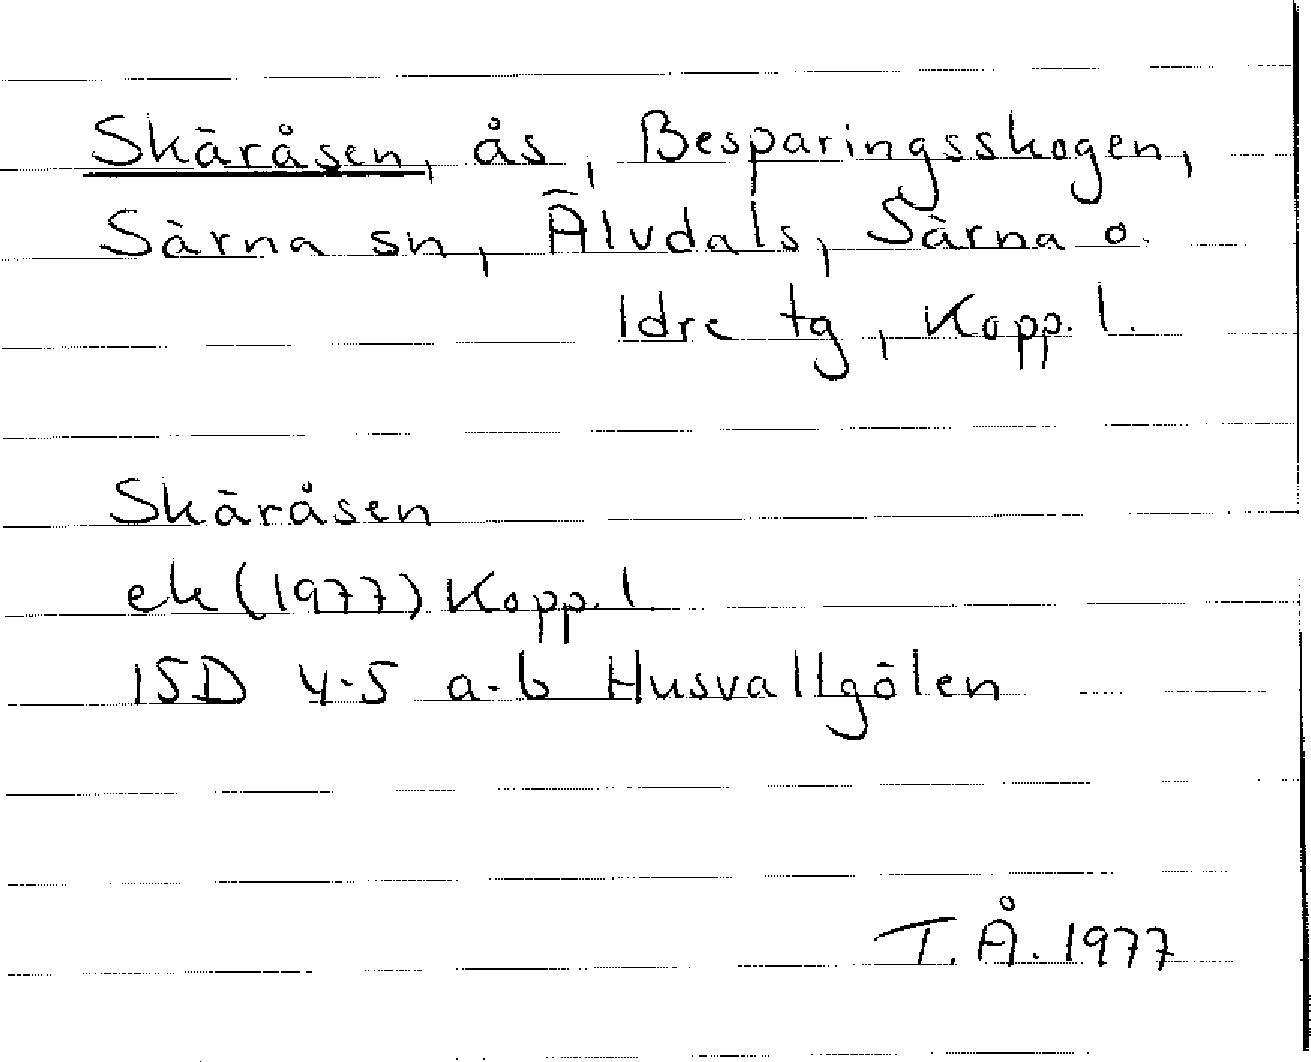 Skäråsen, ås, Besparingsskogen,
Särna sn, Älvdals, Särna o.
Idre tg, Kopp. l.
Skäråsen
ek (1977) Kopp. l.
15D 4-5 a-b Husvallgölen
T. Å. 1977